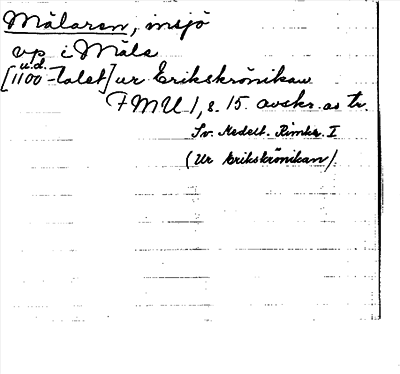 Mälaren, insjö
vp i Mäle
u.d.
[1100-talet] ur Erikskrönikan
FMU 1, s. 15. avskr. as tr.
Sv. Medelt. Rimkr. I
(Ur Erikskrönikan).